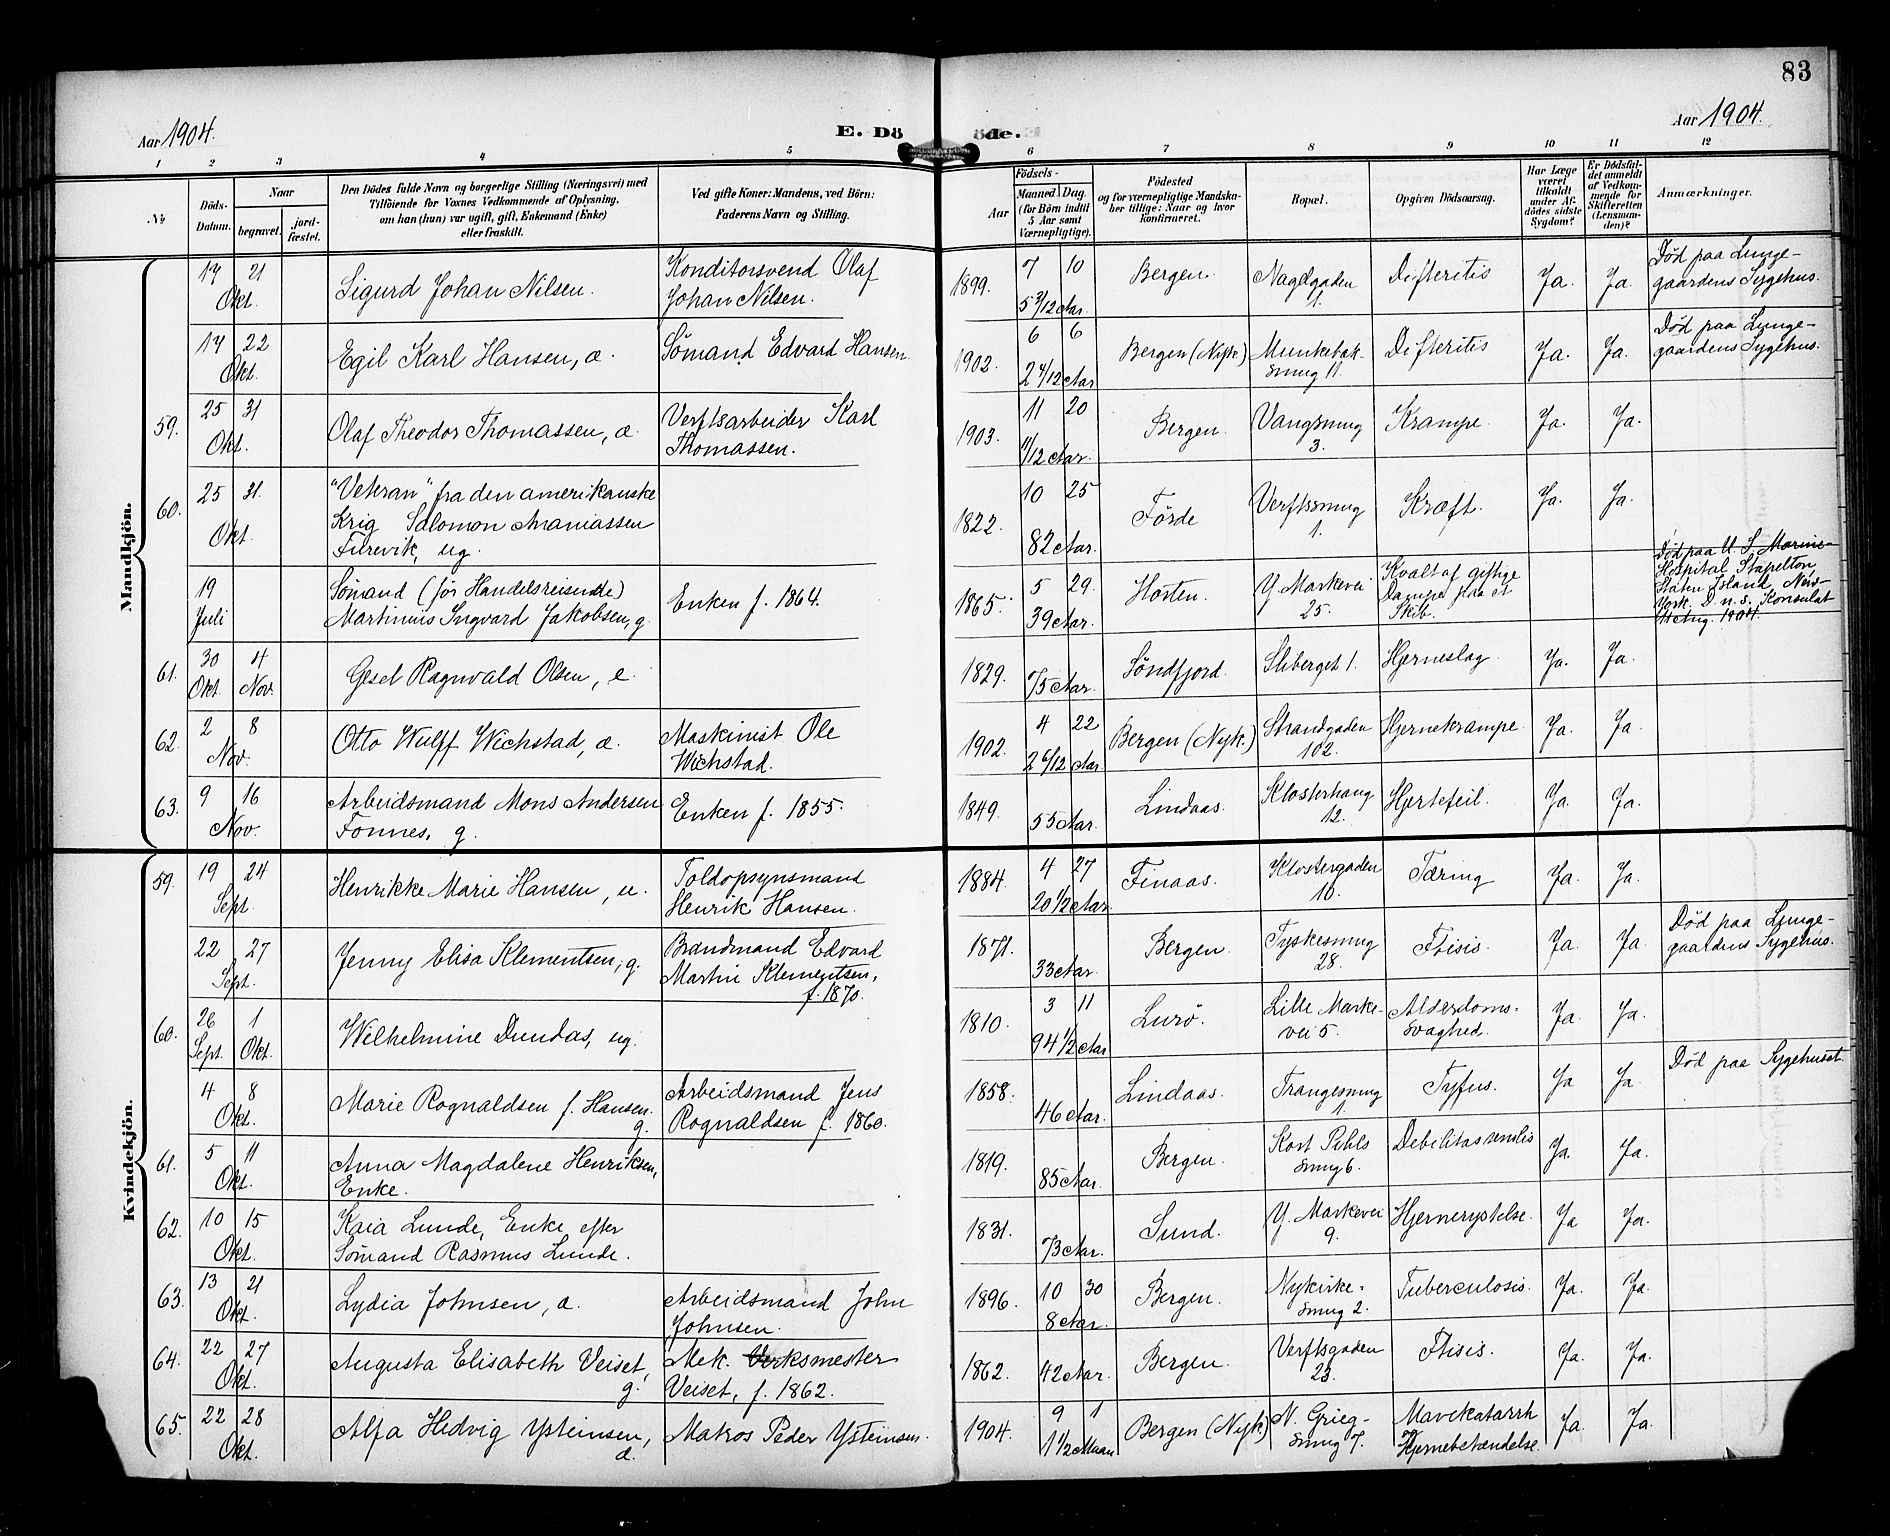 83
Aar 1904.
E. Dö
öde.
Aar 1904.
1 2 3 4 5 6 7 8 9 10 11 12
№
Döds-Datum.
Naar
begravet.
jord-fæstet.
Den Dödes fulde Navn og borgerlige Stilling (Næringsvei) med
Tilföiende for Voxnes Vedkommende af Oplysning,
om han (hun) var ugift, gift, Enkemand (Enke)
eller fraskilt.
Ved gifte Koner: Mandens, ved Börn:
Faderens Navn og Stilling.
Födsels-
Aar
Maaned Dag.
(for Börn indtil
5 Aar samt
Værnepligtige).
Födested
og for værnepligtige Mandska-
ber tillige: Naar og hvor
konfirmeret.
Bopæl.
Opgiven Dödsaarsag.
Har Læge
været
tilkaldt
under Af-
dödes sidste
Sygdom?
Er Dödsfal-
det anmeldt
af Vedkom-
mende for
Skifteretten
(Lensman-
den)?
Anmærkninger.
Mandkjön.
17 21 Okt. Sigurd Johan Nilsen. Konditorsvend Olaf
Johan Nilsen. 1899. 7 10 5 3/12 Aar. Bergen. Naglgaden
1. Difteritis Ja. Ja. Død paa Lunge-
gaardens Sygehus.
17 22 Okt. Egil Karl Hansen, a. Sømand Edvard Hansen 1902. 6 6 2 4/12 Aar Bergen (Nyk.) Munkebæk-
smug 11. Difteritis Ja. Ja. Død paa Lunge-
gaardens Sygehus.
59. 25 31 Okt. Olaf Theodor Thomassen, a. Verftsarbeider Karl
Thomassen. 1903. 11 20 11/12 Aar. Bergen. Vangsmug
3. Krampe. Ja. Ja.
60. 25 31. Okt. "Veteran" fra den amerikanske
Krig Salomon Ananiassen
Furevik, ug. 1822. 10 25 82 Aar. Førde Verftssmug
1. Kræft. Ja. Ja.
19 Juli Sømand (før Handelsreisende)
Martinius Ingvard Jakobsen, g. Enken f. 1864. 1865. 5 29. 39 Aar. Horten. Y. Markevei
25. Kvalt af giftige
Dampe paa et
Skib. Død paa U. S. Marine-
Hospital Stapelton,
Staten Island New-
York. D. n. s. Konsulat
11 Aug. 1904.
61. 30 Okt. 4 Nov. Gesel Ragnvald Olsen, e. 1829. 75 Aar. Søndfjord. Sliberget 1. Hjerneslag. Ja. Ja.
62. 2 8 Nov. Otto Wulff Wichstad, a. Maskinist Ole
Wichstad. 1902. 4 22 2 6/12 Aar. Bergen (Nyk.) Strandgaden
102. Hjernekrampe. Ja. Ja.
63. 9 16 Nov. Arbeidsmand Mons Andersen
Fonnes, g. Enken f. 1855. 1849. 55 Aar. Lindaas. Klosterhaug
12. Hjertefeil. Ja. Ja.
Kvindekjön.
59. 19 24 Sept. Henrikke Marie Hansen, u. Toldopsynsmand
Henrik Hansen. 1884. 4 27 20 1/2 Aar. Finaas. Klostergaden
10. Tæring Ja. Ja.
22 27 Sept. Jenny Elisa Klementsen, g. Brandmand Edvard
Martin Klementsen,
f. 1870. 1871. 33 Aar. Bergen. Tyskesmug
28. Ftisis. Ja. Ja Død paa Lunge-
gaardens Sygehus.
60. 26 Sept. 1 Okt. Wilhelmine Dundas, ug. 1810. 3 11 94 1/2 Aar Lurø. Lille Marke-
vei 5. Alderdoms-
svaghed. Ja. Ja.
4 8 Okt. Marie Rognaldsen f. Hansen.
g. Arbeidsmand Jens
Rognaldsen f. 1860. 1858. 46 Aar. Lindaas. Trangesmug
1. Tyfus. Ja Ja. Død paa Sygehuset.
61. 5 11 Okt. Anna Magdalene Henriksen,
Enke. 1819. 85 Aar. Bergen. Kort Pihls
smug 6. Debilitas senilis Ja. Ja.
62. 10 15 Okt. Kaia Lunde, Enke efter
Sømand Rasmus Lunde. 1831. 73 Aar. Sund. Y. Markevei
9. Hjernerystelse. Ja Ja.
63. 13 21 Okt. Lydia Johnsen, a. Arbeidsmand John
Johnsen. 1896. 10 30 8 Aar. Bergen. Nykirke-
smug 2. Tuberculosis. Ja. Ja.
64. 22 27 Okt. Augusta Elisabeth Veiset,
g. Mek. Verksmester
Veiset, f. 1862. 1862. 42 Aar. Bergen. Verftsgaden
23. Ftisis. Ja. Ja.
65. 22 28 Okt. Alfa Hedvig Ysteinsen,
a. Matros Peder Ysteinsen. 1904. 9 1 1 1/2 Maan Bergen (Nyk.) N. Grieg-
smug 7. Mavekatarrh
og
Hjernebetændelse. Ja. Ja.